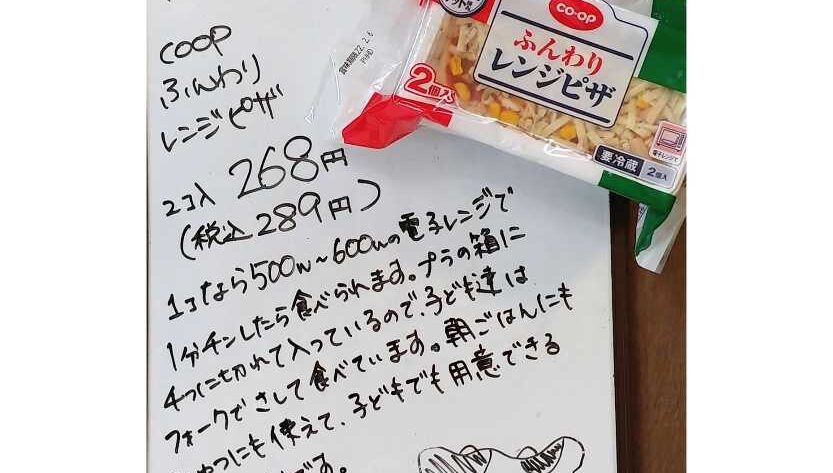 coop
ふんわり
レンジピザ
2コ入 268円
(税込289円)
1コなら500w～600wの電子レンジで
1分チンしたら食べられます。プラの箱に
4つに切れて入っているので、子ども達は
フォークでさして食べています。朝ごはんにも
おやつにも使えて、子どもでも用意できる
です。
賞味期限22.2.6
CO・OP
ふんわり
レンジピザ
2個入
要冷蔵
2個入
電子レンジで